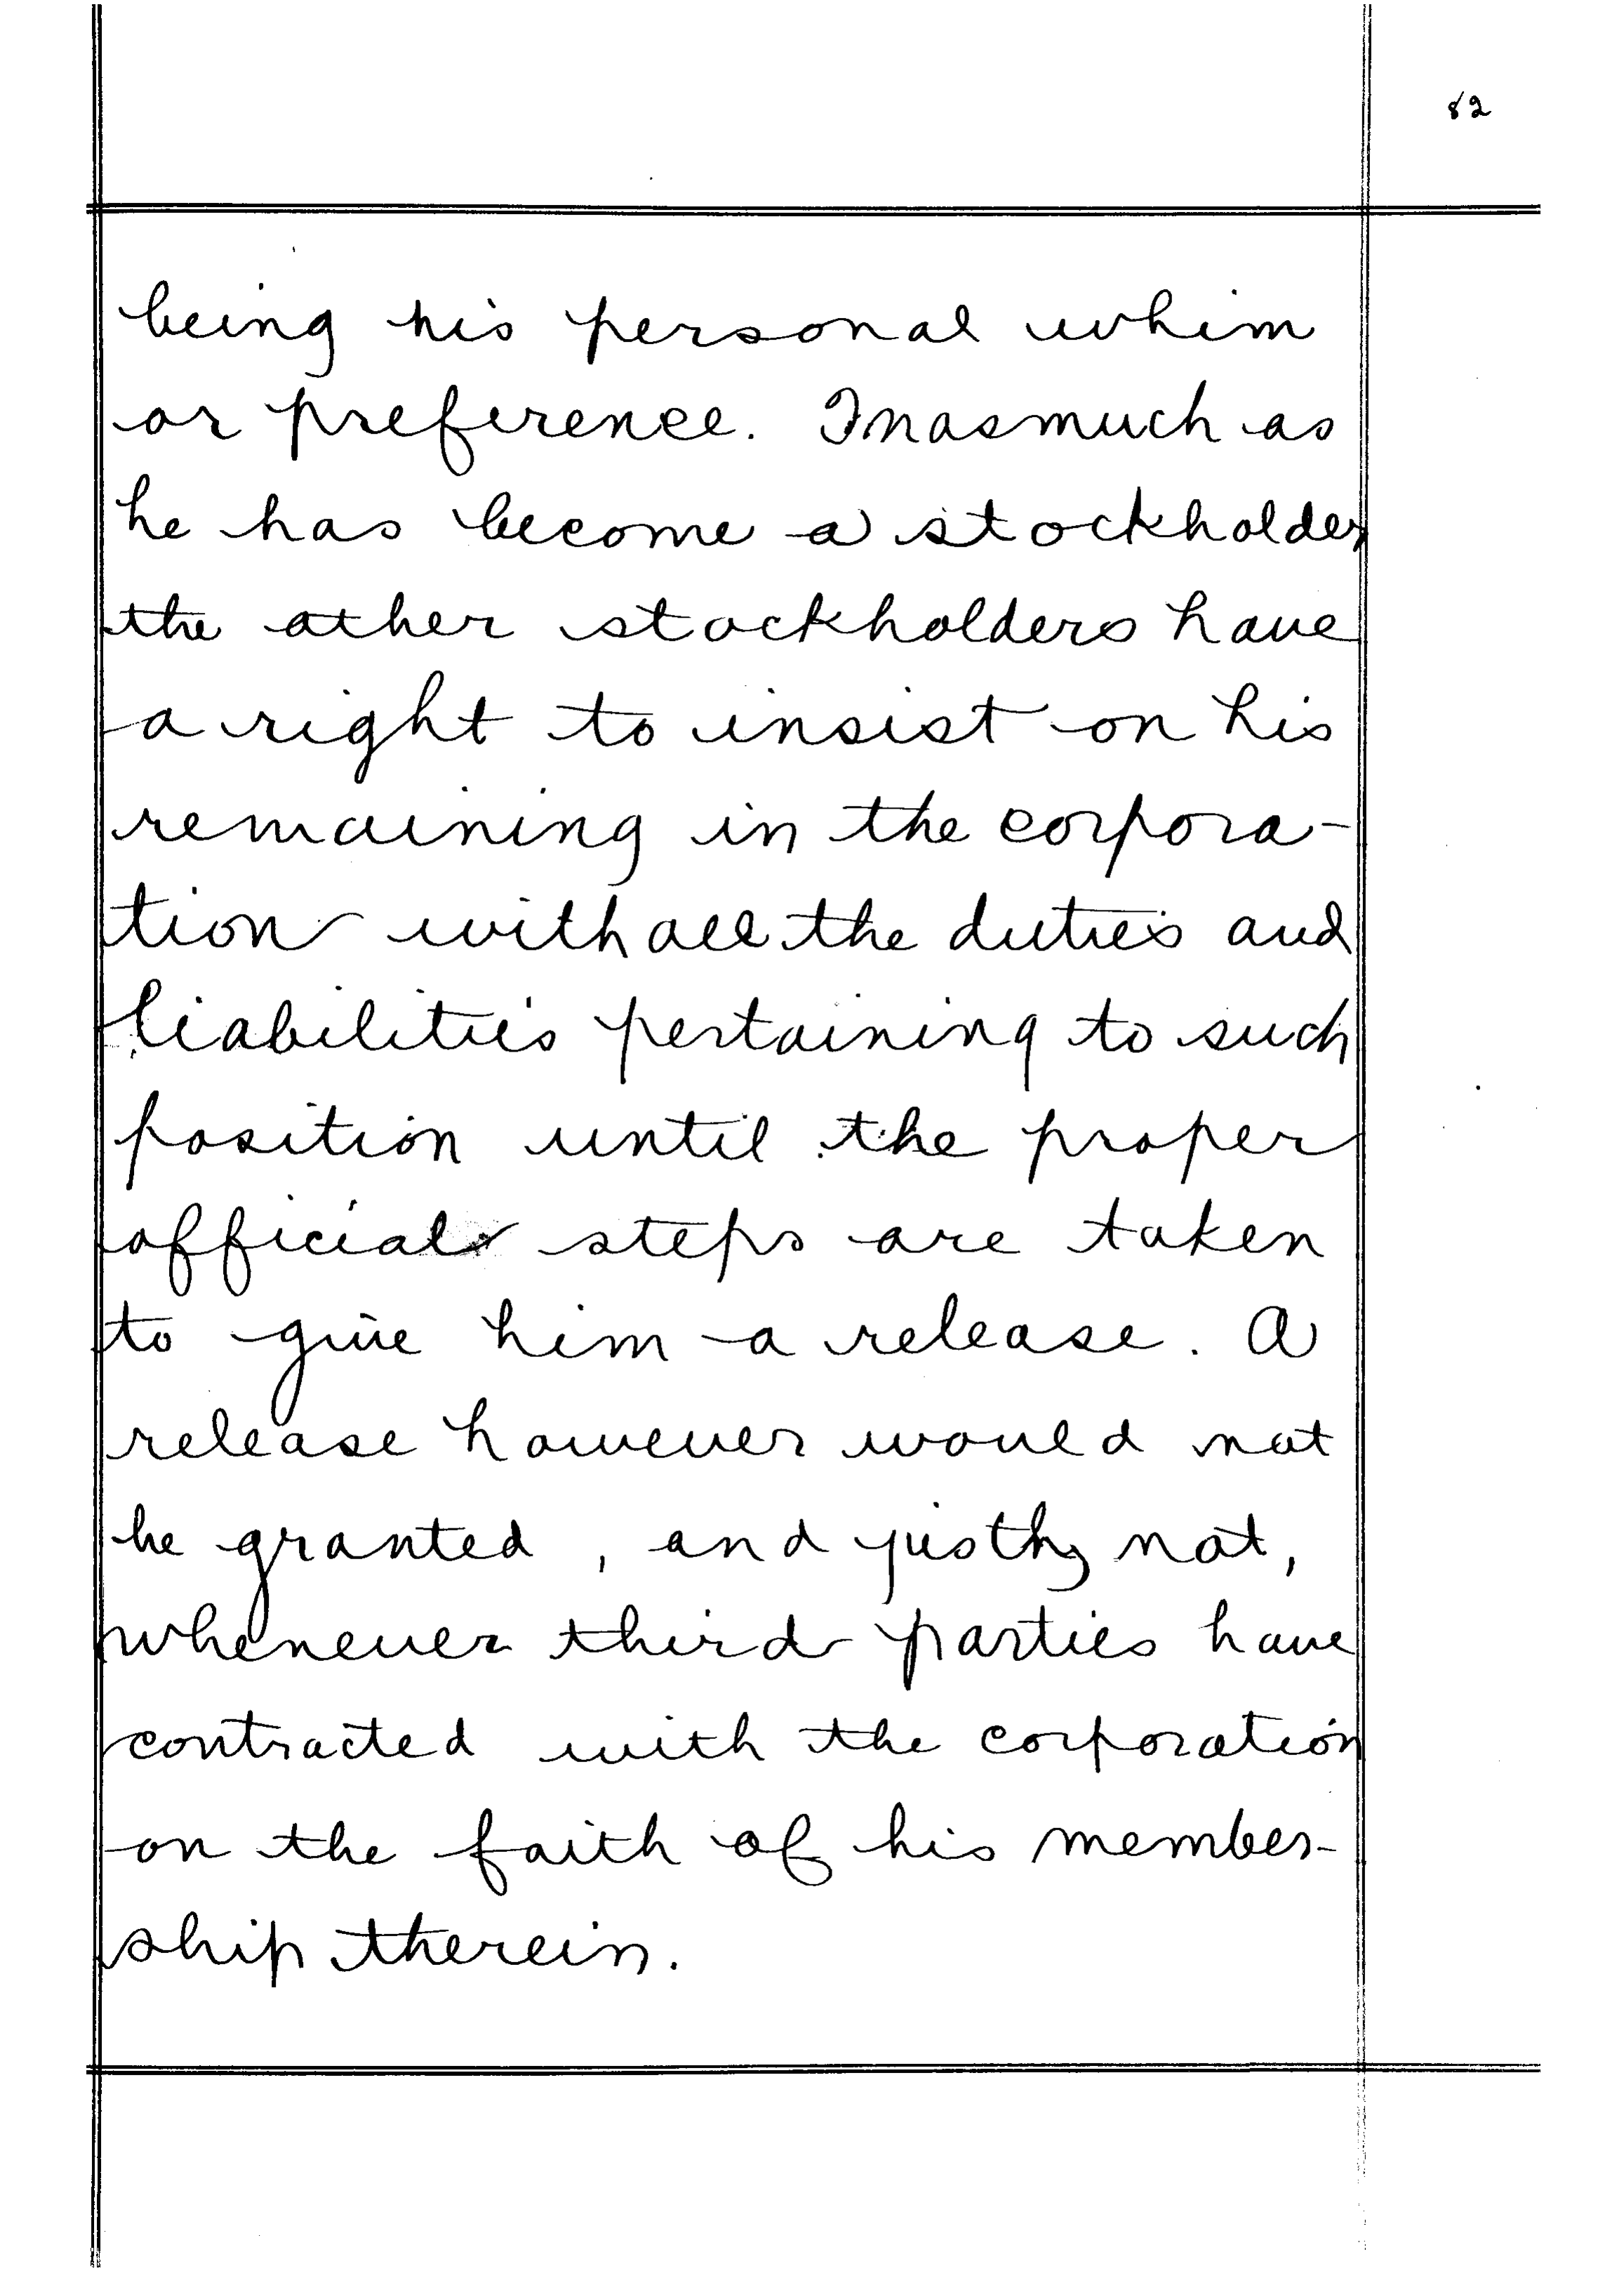 82
being his personal whim
or preference. Inasmuch as
he has become a stockholder
the other stockholders have
a right to insist on his
remaining in the corpora-
tion with all the duties and
liabilities pertaining to such
position until the proper
official steps are taken
to give him a release. A
release however would not
be granted, and justly not,
whenever third parties have
contracted with the corporation
on the faith of his member-
ship therein.